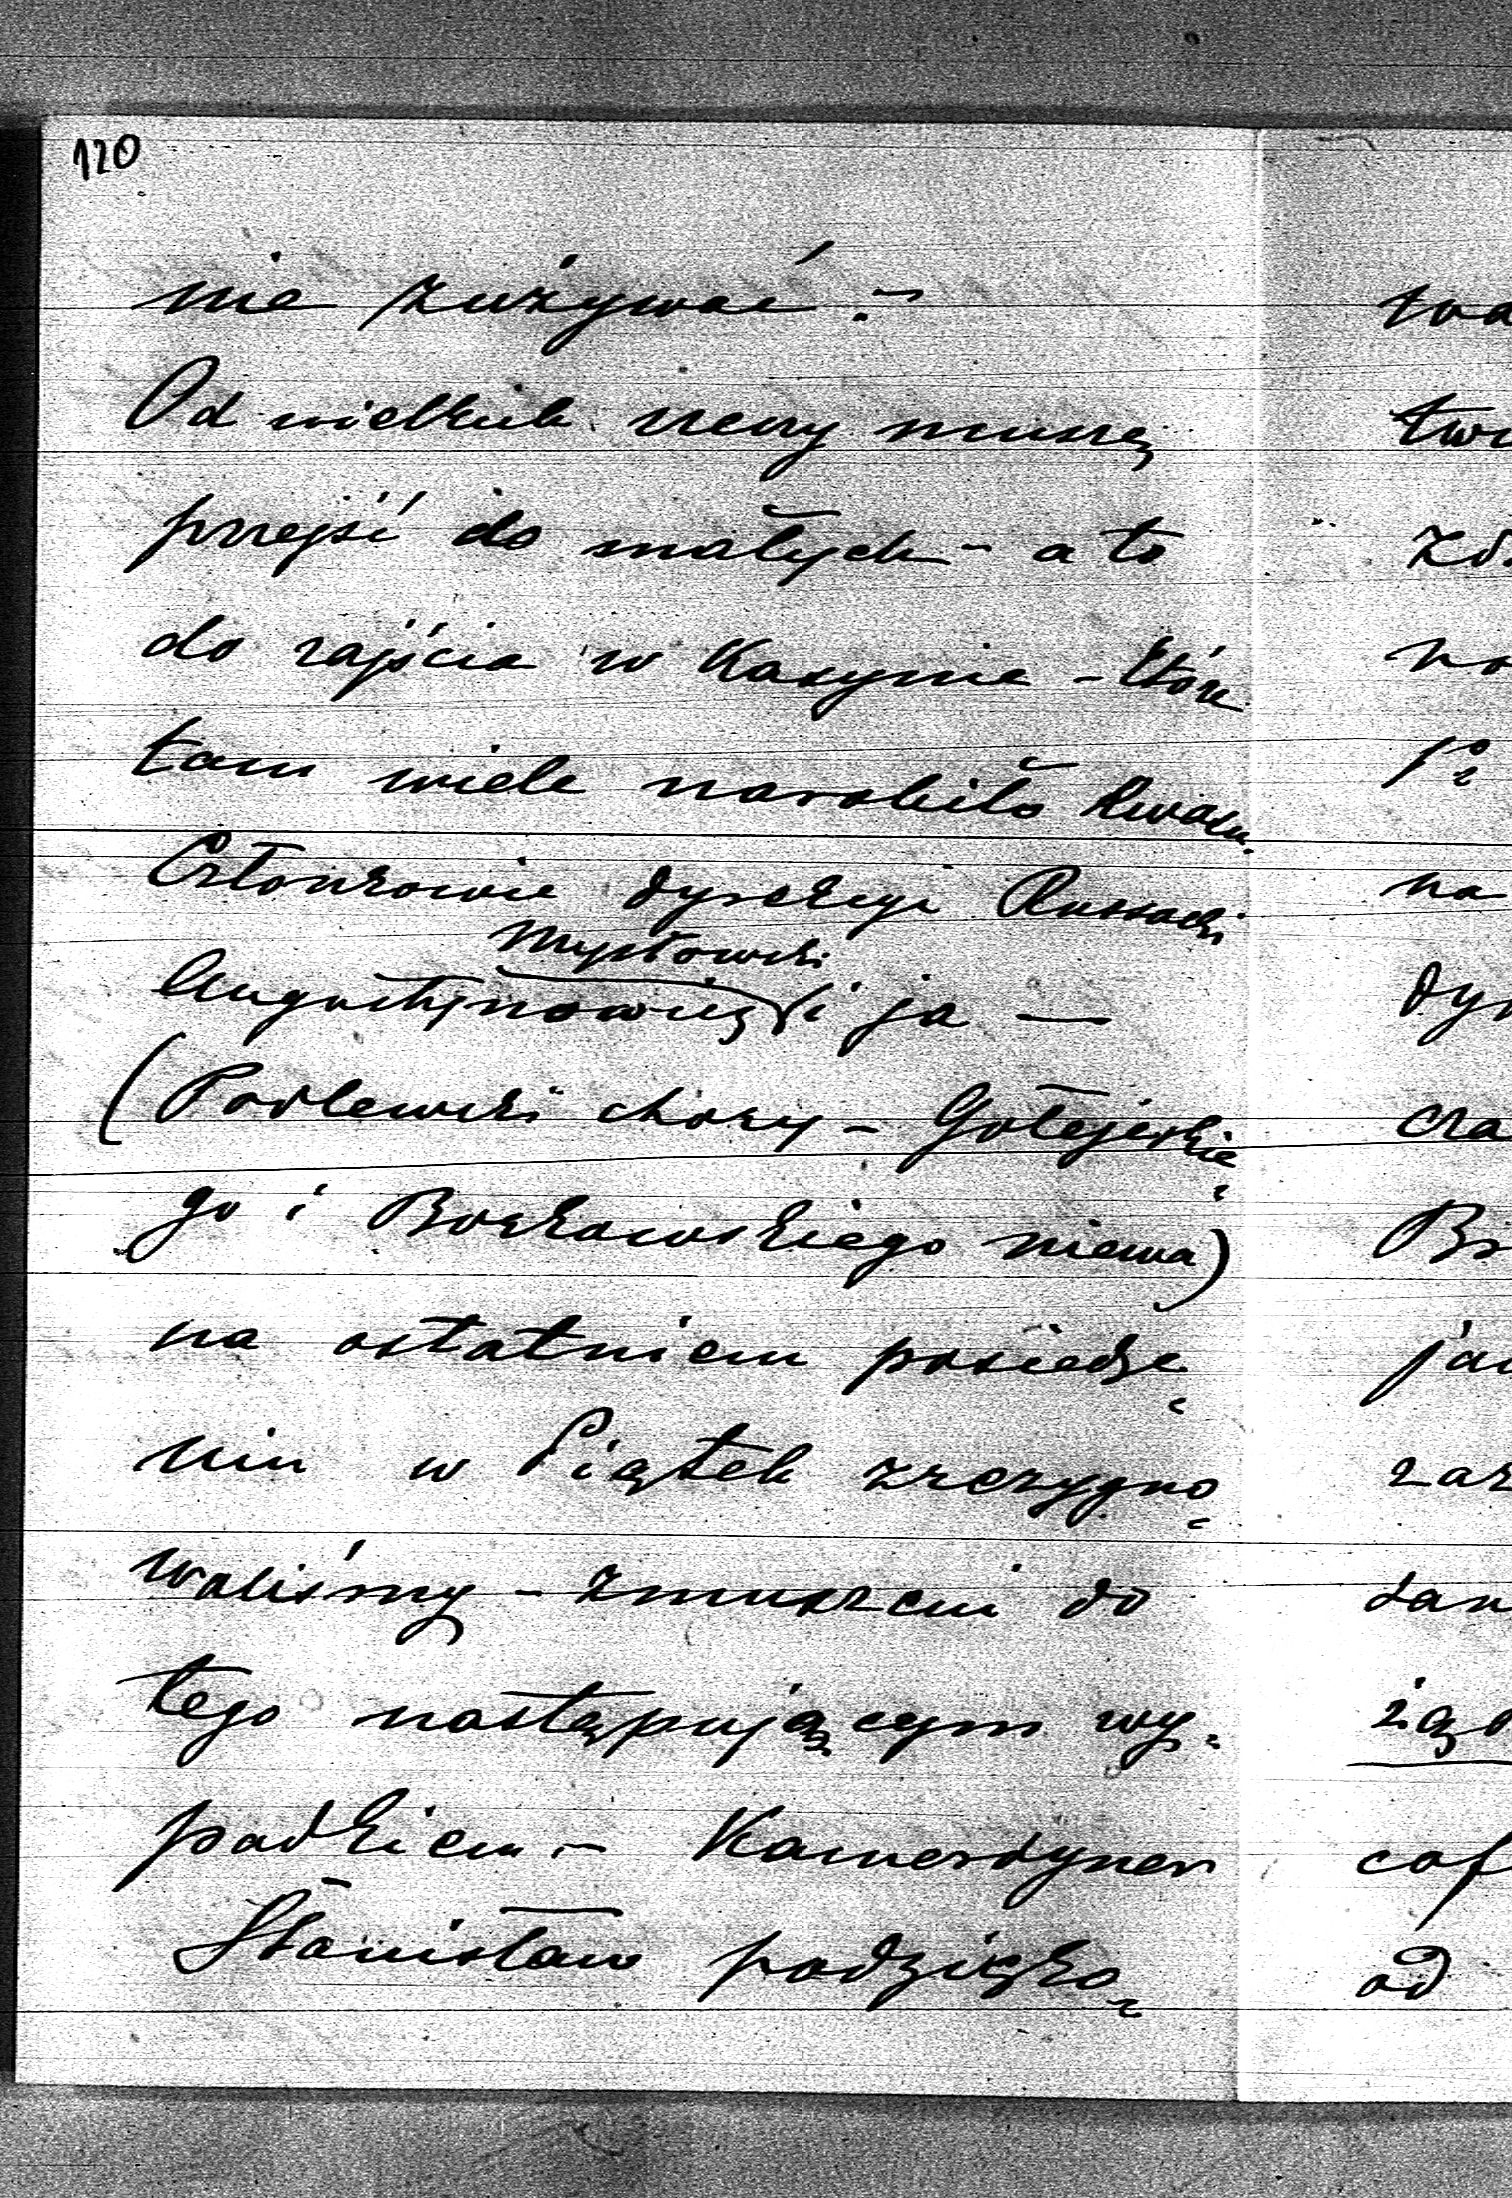 120
nie zużywać. –
Od wielkich rzeczy muszę
przejść do małych – a to
do zajścia w Kasynie – które
tam wiele narobiło kwasu.
Członkowie dyrekcyi Russocki
Mysłowski
Augustynowicz i ja —
(Podlewski chory – Gołejewskie
go i Bočkowskiego niema)
na ostatniem posiedze
niu w Piątek zrezygno
waliśmy – zmuszeni do
tego następującym wy
padkiem – Kamerdyner
Stanisław podzięko